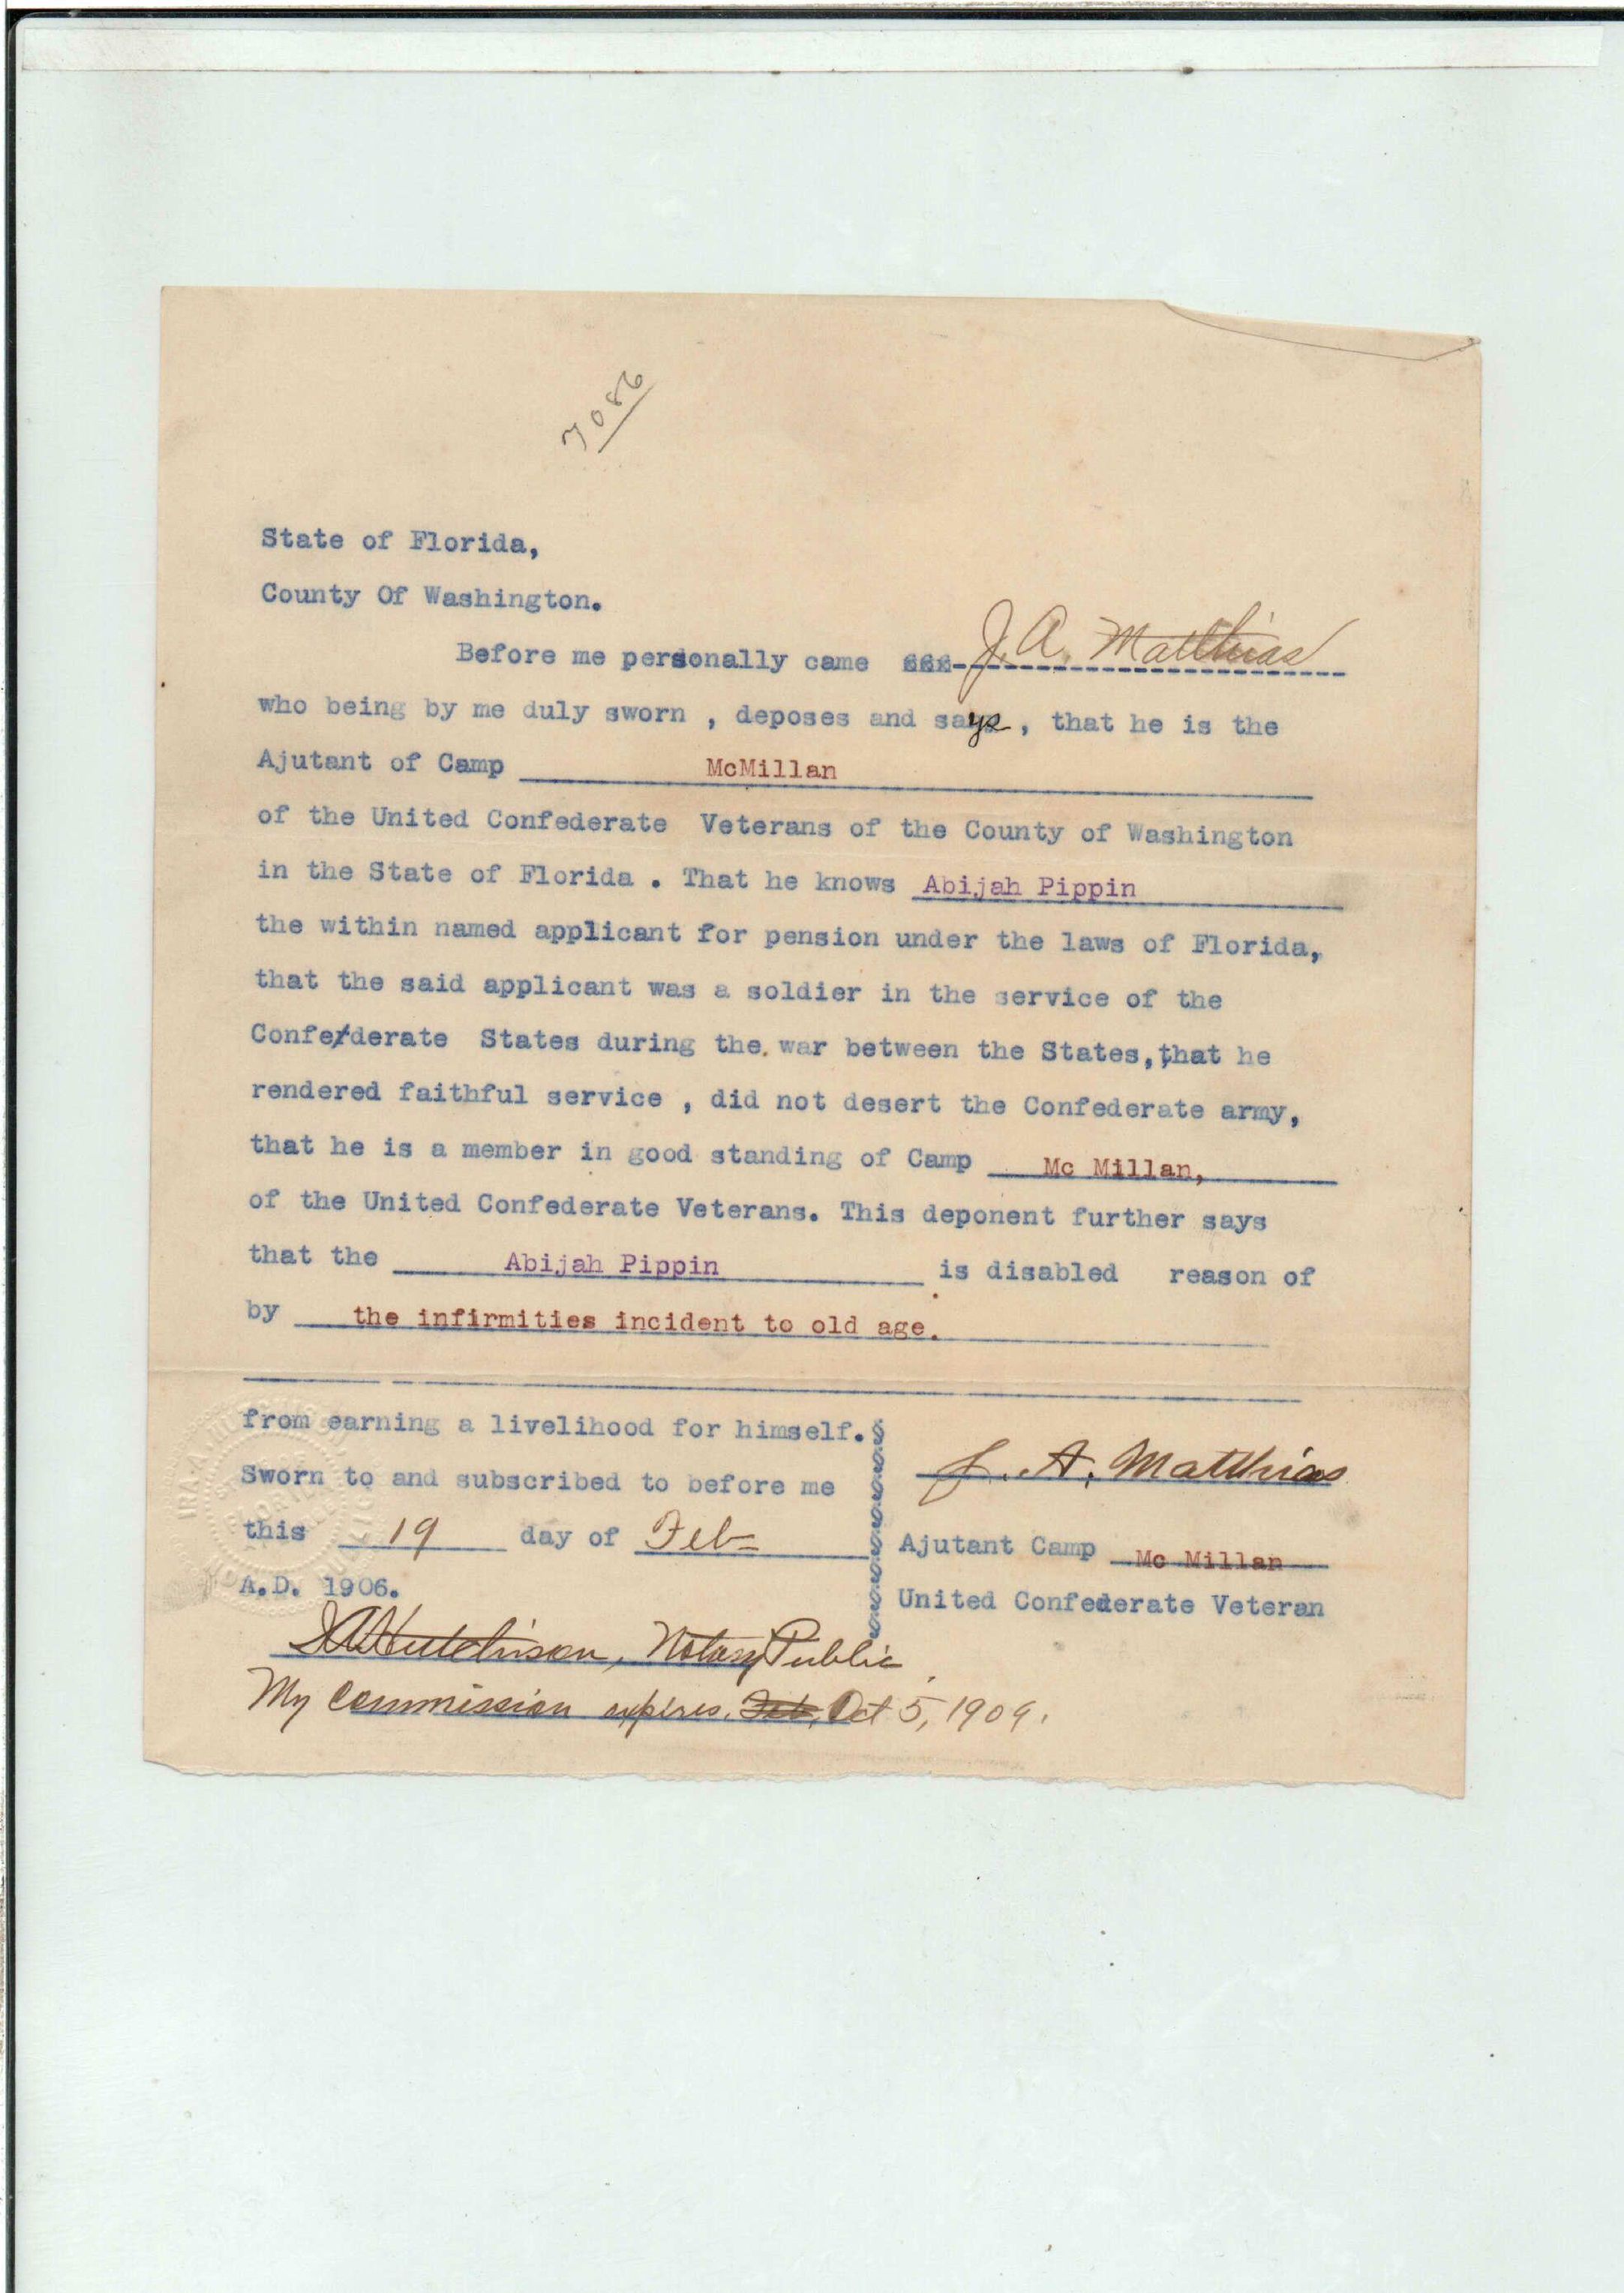 7086
State of Florida,
County Of Washington.
Before me personally came J. A. Matthias
who being by me duly sworn , deposes and says , that he is the
Ajutant of Camp McMillan
of the United Confederate Veterans of the County of Washington
in the State of Florida . That he knows Abijah Pippin
the within named applicant for pension under the laws of Florida,
that the said applicant was a soldier in the service of the
Confederate States during the. war between the States, that he
rendered faithful service , did not desert the Confederate army,
that he is a member in good standing of Camp Mc Millan,
of the United Confederate Veterans. This deponent further says
that the Abijah Pippin is disabled reason of
by the infirmities incident to old age.
from earning a livelihood for himself.
Sworn to and subscribed to before me
this 19 day of Feb
A.D. 1906.
J. A. Matthias
Ajutant Camp Mc Millan
United Confederate Veteran
IAHutchison, Notary Public
My Commission expires. Feb, Oct 5, 1909.